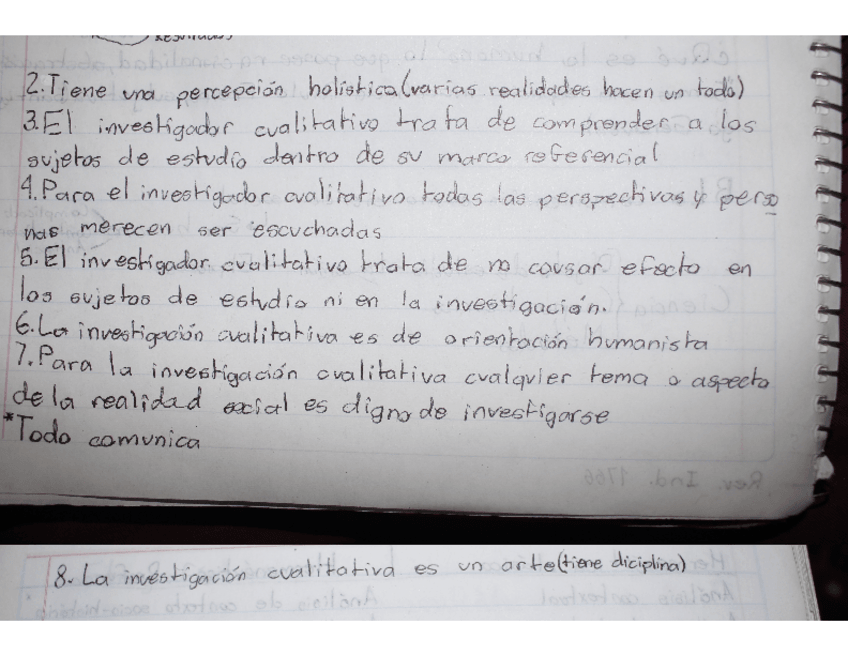 2. Tiene una percepción holística (varias realidades hacen un todo)
3. El investigador cualitativo trata de comprender a los
sujetos de estudio dentro de su marco referencial
4. Para el investigador cualitativo todas las perspectivas y perso
nas merecen ser escuchadas
5. El investigador cualitativo trata de no causar efecto en
los sujetos de estudio ni en la investigación.
6. La investigación cualitativa es de orientación humanista
7. Para la investigación cualitativa cualquier tema o aspecto
de la realidad social es digno de investigarse
*Todo comunica
8. La investigación cualitativa es un arte (tiene diciplina)